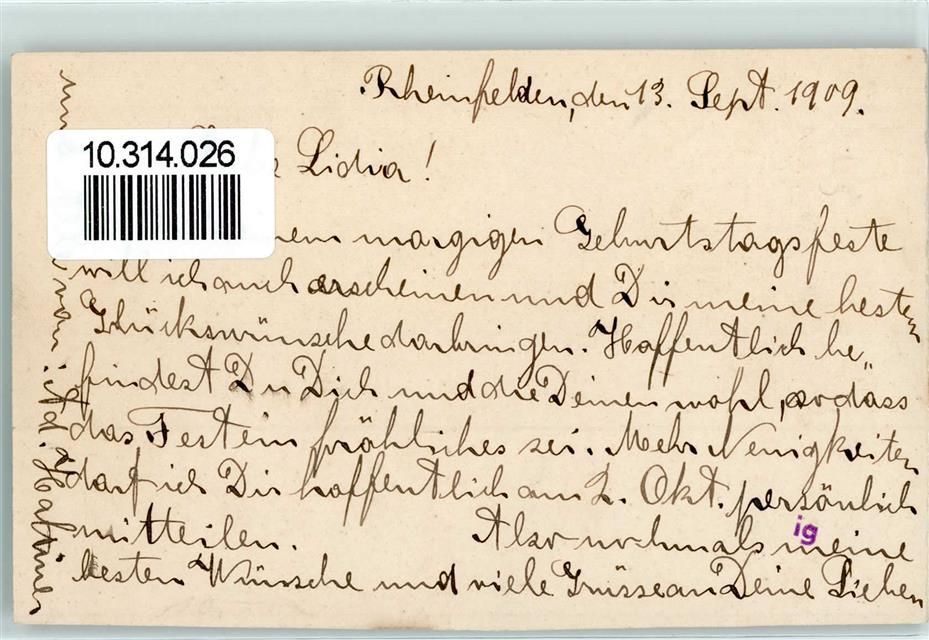 Rheinfelden, den 13. Sept. 1909.
Lidia!
10.314.026
margigen Geburtstagsfeste
will ich auch erscheinen und Dir meine besten
Glückswünsche darbringen. Hoffentlich be„
findest Du Dich und die Deinen wohl, sodass
das Fest ein fröhliches sei. Mehr Neuigkeiten
darf ich Dir hoffentlich am 2. Okt. persönlich
mitteilen. Also nochmals meine
ig
besten Wünsche und viele Grüsse an Deine Lieben
von